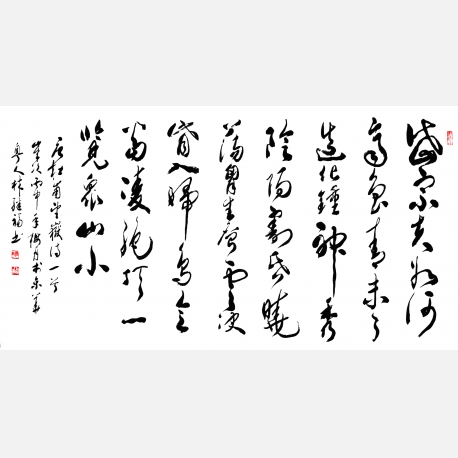 岱宗夫如何
齊魯青未了
造化鍾神秀
陰陽割昏曉
蕩胷生層雲決
眥入歸鳥會
當凌絶頂一
覽眾山小
唐杜甫望嶽詩一首
歲次丙申年 月於
粵人林 書